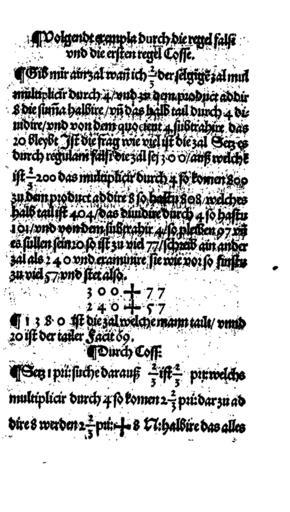 ¶Volgendt exempla durch die regel falsi
vnd die ersten regel Cosse.
¶Gib mir ain zal wañ ich 2/3 der selbigẽ zal mul
multiplicir durch 4/vnd zu dem product addir
8 die suma halbire/vñ das halb tail durch 4 di
uidire/vnd von dem quocient 4 subtrahire das
20 bleybt Ist die frag wie viel ist die zal Setz es
durch regulam falsi die zal sey 300/auß welche
ist 2/3 200 das multiplicir durch 4 so komen 800
zu dem product addire 8 so hastu 808/welches
halb tail ist 404/das diuidire durch 4 so hastu
101/vnd von den subtrahir 4/so pleiben 97 vñ
es sullen sein 20 so ist zu viel 77/schreib ain ander
zal als 240 vnd examinire sie wie vor so finstu
zu viel 57 vnd stet also.
300 + 77
240 + 57
¶1380 ist die zal welche mann tailt/vnnd
20 ist der tailer facit 69.
¶Durch Coss.
¶Setz 1 pri: suche darauß 2/3 ist 2/3 pri: welchs
multiplicir durch 4 so komen 2 2/3 pri: dar zu ad
dire 8 werden 2 2/3 pri: + 8 N: halbire das alles